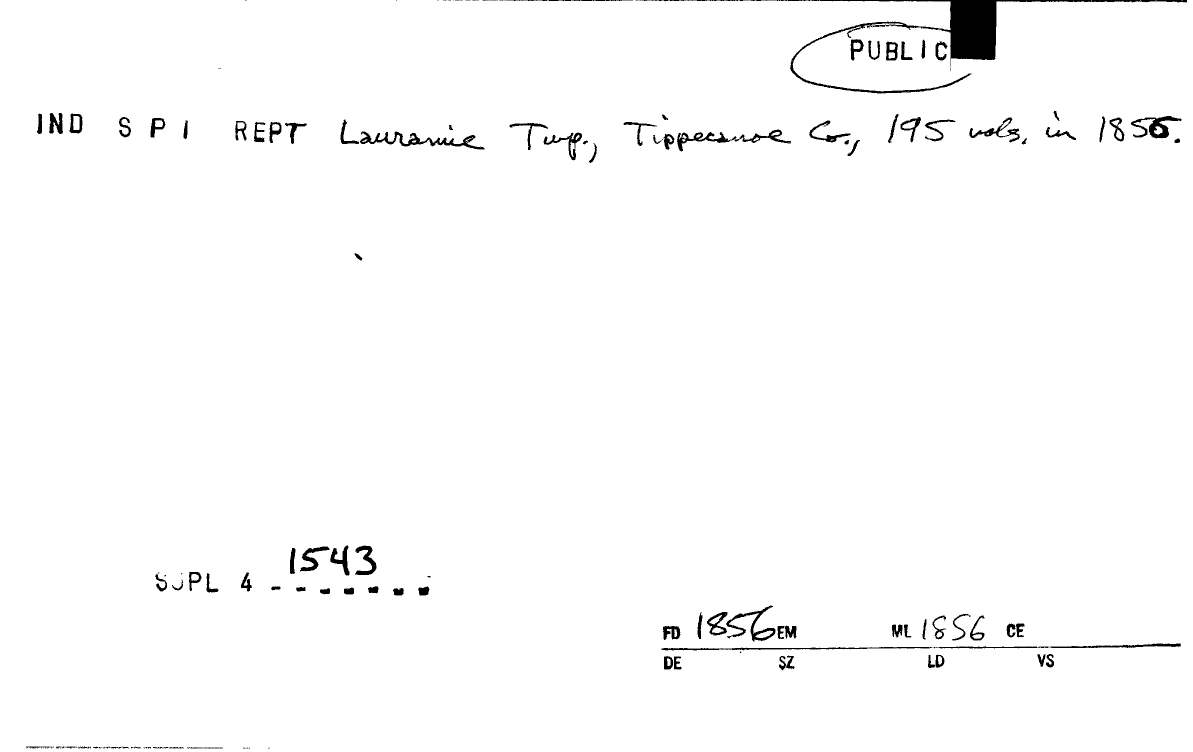 PUBLIC
IND SPI REPT Lauramie Twp., Tippecanoe Co., 195 vols. in 1856.
1543
SUPL 4 - - - - - - -
FD 1856 EM ML 1856 CE
DE SZ LD VS